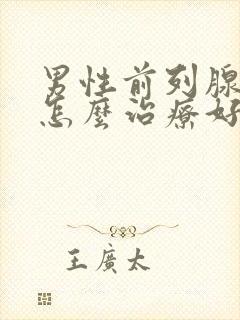 男性前列腺
怎麼治療好
王廣太